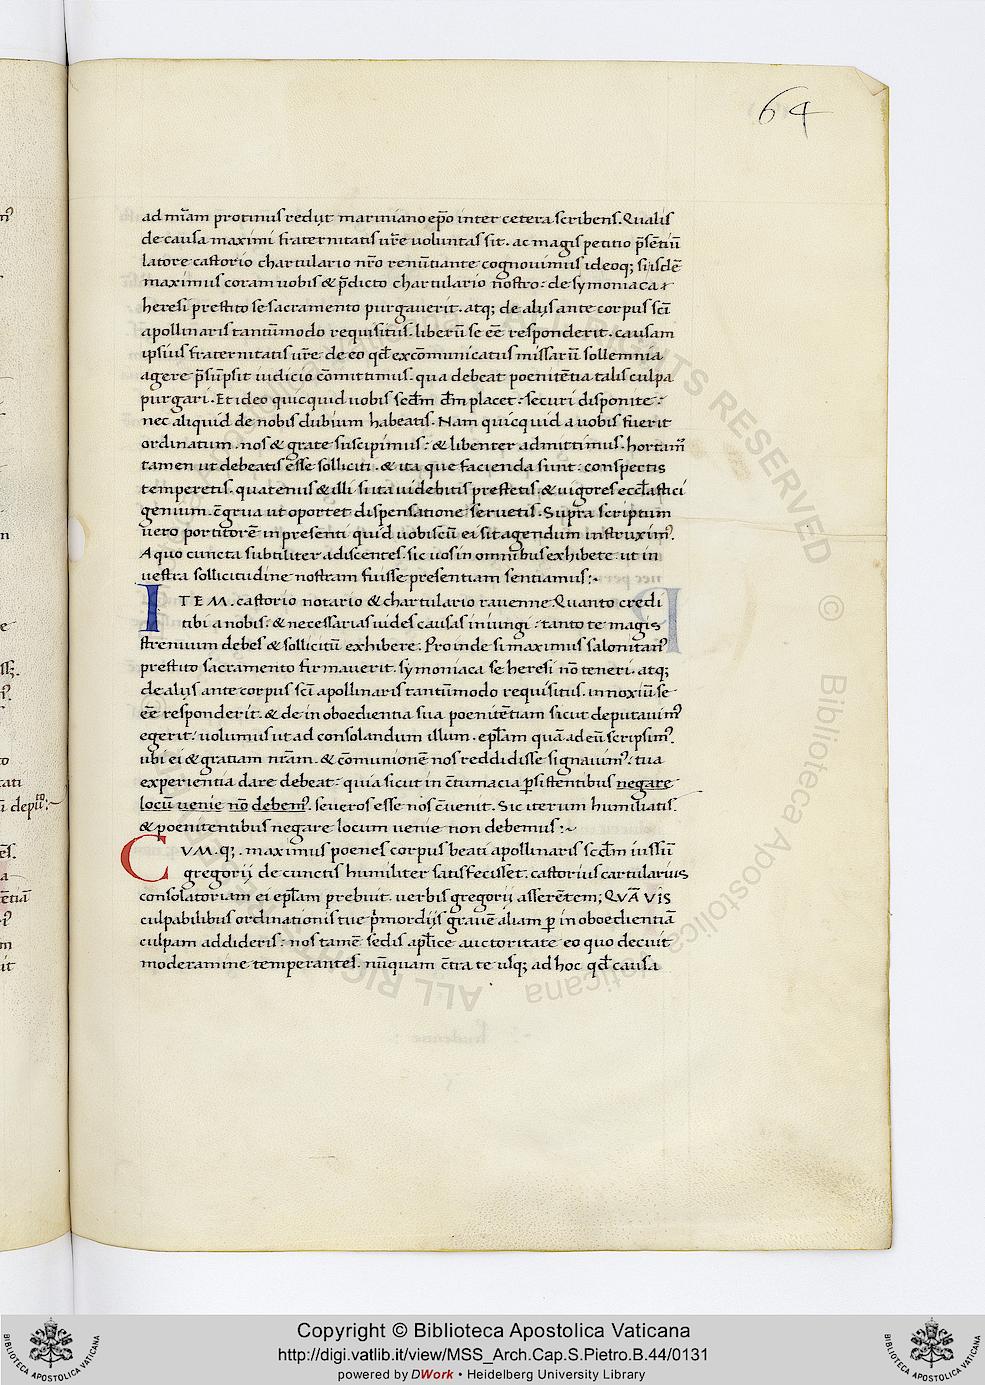 64
ad mr̄am protinus redijt mariniano ep̄o inter cetera scribens. Qualis
de causa maximi fraternitatis ur̄e uoluntas sit. ac magis petitio p̄sētiū
latore castorio chartulario nr̄o renūtiante cognouimus ideoq; si isdē
maximus coram uobis & p̄dicto chartulario nostro: de symoniaca
heresi prestito se sacramento purgauerit. atq; de alijs ante corpus sc̄i
apollinaris tantūmodo requisitus. liberū se eē responderit. causam
ipsius fraternitatis ur̄e de eo qd̄ excōmunicatus missarū sollemnia
agere p̄sūpsit iudicio cōmittimus. qua debeat poenitētia talis culpa
purgari. Et ideo quicquid uobis scd̄m dm̄ placet: securi disponite:
nec aliquid de nobis dubium habeatis. Nam quicquid a uobis fuerit
ordinatum. nos & grate suscipimus: & libenter admittimus. hortam᷒
tamen ut debeatis esse solliciti. & ita que facienda sunt: conspectis
temperetis. quatenus & illi si ita uidebitis prestetis. & uigores eccl̄astici
genium. c̄grua ut oportet dispensatione seruetis. Supra scriptum
uero portitorē in presenti quid uobiscū ei sit agendum instruxim᷒.
A quo cuncta subtiliter adiscentes. sic uos in omnibus exhibete ut in
uestra sollicitudine nostram fuisse presentiam sentiamus:~
ITEM. castorio notario & chartulario rauenne. Quanto credi
tibi a nobis: & necessarias uides causas iniungi: tanto te magis
strenuum debes & sollicitū exhibere. Proinde si maximus salonitan᷒
prestito sacramento firmauerit. symoniaca se heresi nō teneri. atq;
de alijs ante corpus sc̄i apollinaris tantūmodo requisitus. innoxiū se
eē responderit. & de inoboedientia sua poenitētiam sicut deputauim᷒
egerit: uolumus ut ad consolandum illum. epl̄am quā ad eū scripsim᷒.
ubi ei & gratiam nr̄am. & cōmunionē nos reddidisse signauim᷒: tua
experientia dare debeat: quia sicut in c̄tumacia ꝑsistentibus negare
locū uenie nō debem᷒. seueros esse nos c̄uenit. Sic iterum humiliatis
& poenitentibus negare locum uenie non debemus:~
CVM.q;. maximus poenes corpus beati apollinaris scd̄m iussiū
gregorij de cunctis humiliter satisfecisset. castorius cartularius
consolatoriam ei epl̄am prebuit. uerbis gregorij asserētem; QVĀ VIS
culpabilibus ordinationis tue p̄mordijs grauē aliam ꝑ inoboedientiā
culpam addideris: nos tamē sedis apl̄ice auctoritate eo quo decuit
moderamine temperantes. nūquam c̄tra te usq; ad hoc qd̄ causa
Copyright © Biblioteca Apostolica Vaticana
http://digi.vatlib.it/view/MSS_Arch.Cap.S.Pietro.B.44/0131
powered by DWork • Heidelberg University Library